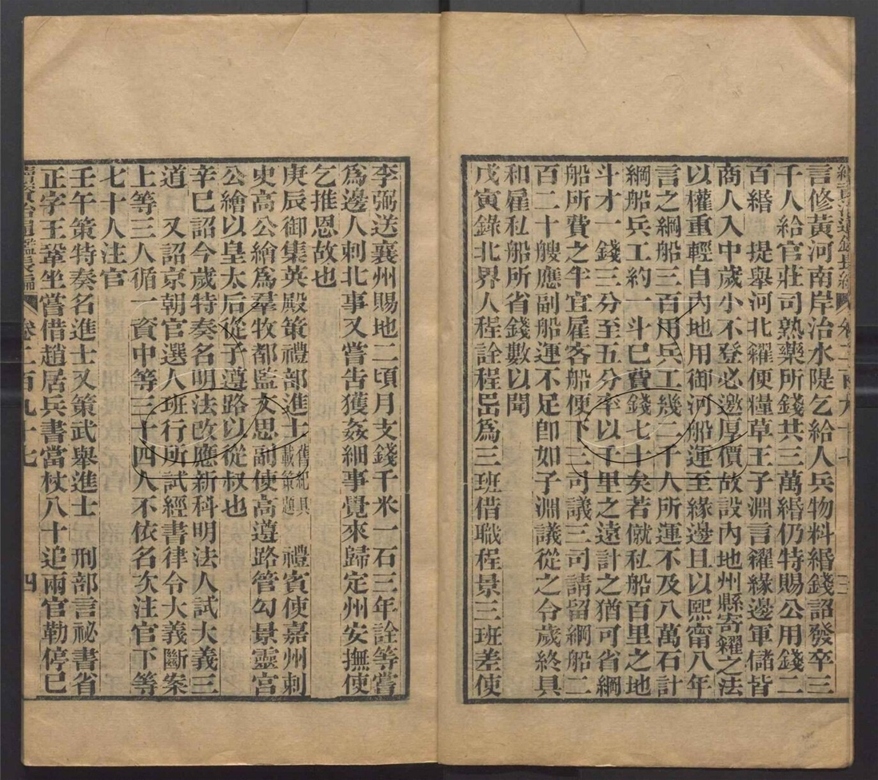 言修黃河南岸治水隄乞給人兵物料緡錢詔發卒三
千人給官莊司熟藥所錢共三萬緡仍特賜公用錢二
百緡　提舉河北糴便糧草王子淵言糴緣邊軍儲皆
商人入中歲小不登必邀厚價故設內地州縣寄糴之法
以權重輕自內地用御河船運至緣邊且以熙甯八年
言之綱船三百用兵工幾二千人所運不及八萬石計
綱船兵工約一斗已費錢七十矣若僦私船百里之地
斗才一錢三分至五分率以千里之遠計之猶可省綱
船所費之半宜雇客船便下三司議三司請留綱船二
百二十艘應副船運不足卽如子淵議從之令歲終具
和雇私船所省錢數以聞
戊寅錄北界人程詮程岊爲三班借職程景三班差使
李弼送襄州賜地二頃月支錢千米一石三年詮等嘗
爲邊人刺北事又嘗告獲姦細事覺來歸定州安撫使
乞推恩故也
庚辰御集英殿策禮部進士舊紀具載策題　禮賓使嘉州刺
史高公繪爲羣牧都監文思副使高遵路管勾景靈宮
公繪以皇太后從子遵路以從叔也
辛巳詔今歲特奏名明法改應新科明法人試大義三
道　又詔京朝官選人班行所試經書律令大義斷案
上等三人循一資中等三十四人不依名次注官下等
七十人注官
壬午策特奏名進士又策武舉進士　刑部言祕書省
正字王鞏坐嘗借趙居兵書當杖八十追兩官勒停已
續資治通鑑長編　卷二百九十七　四